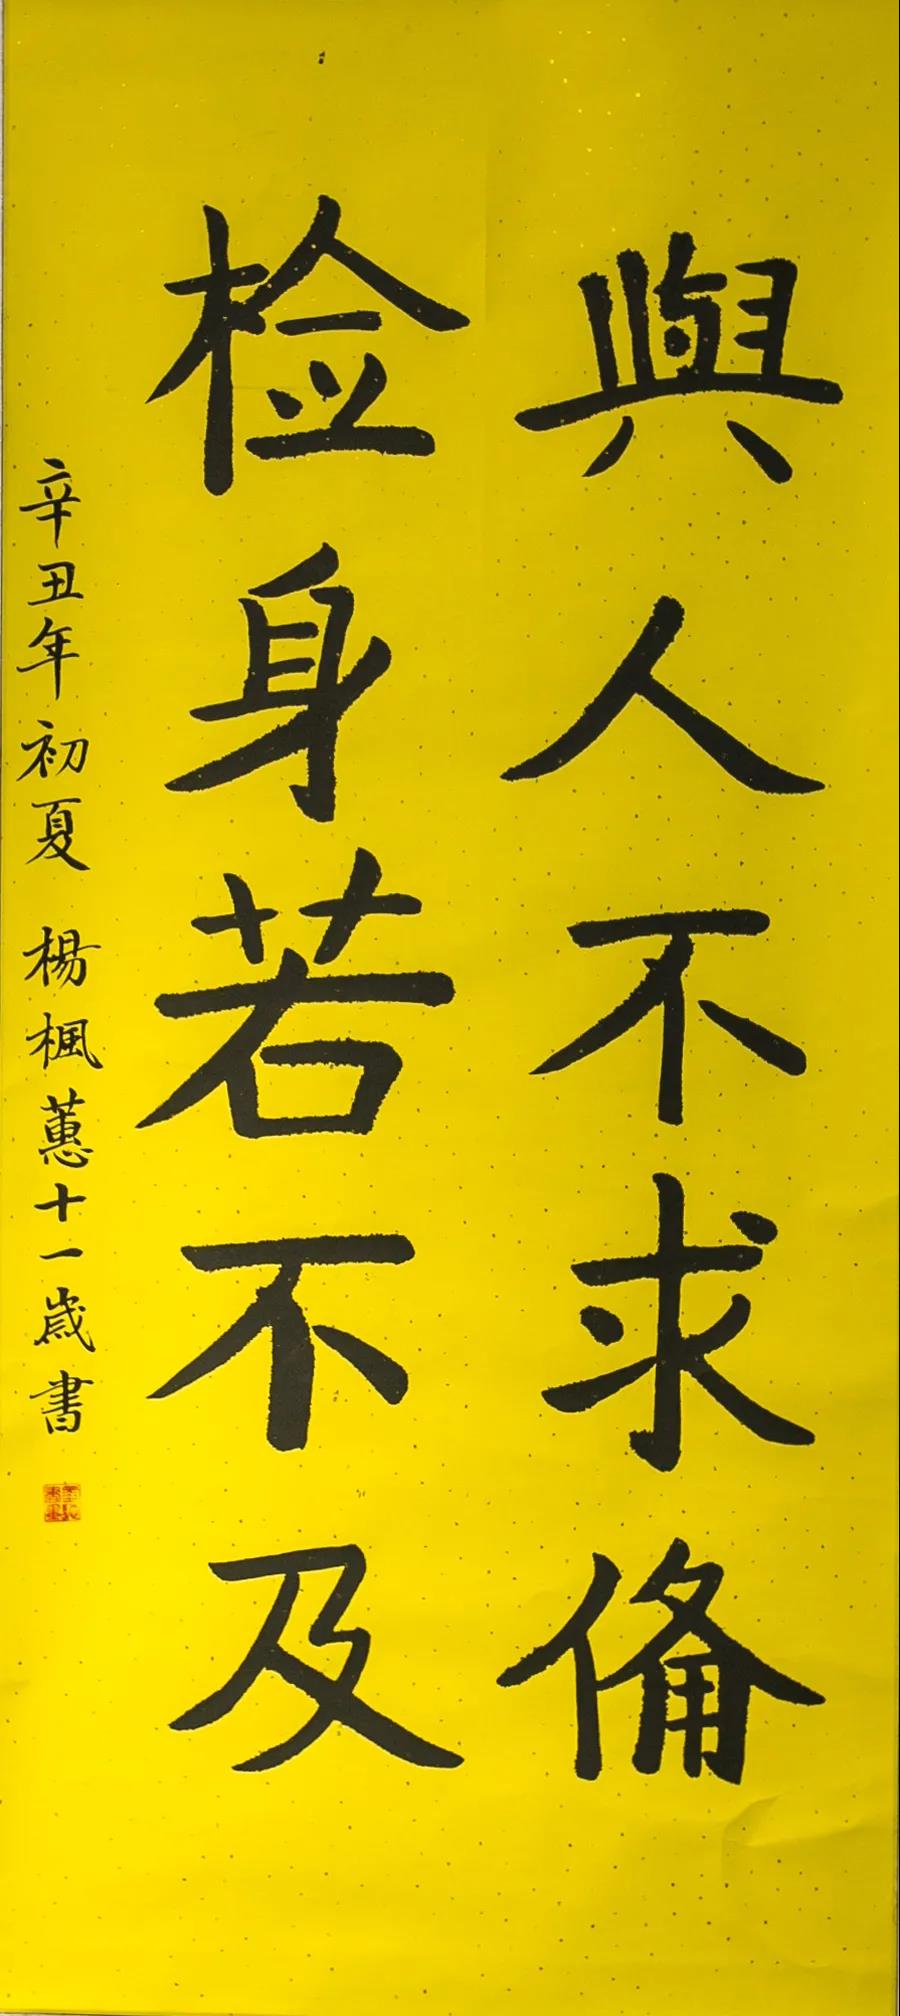 與人不求俻
检身若不及
辛丑年初夏 楊楓蕙十一歲書